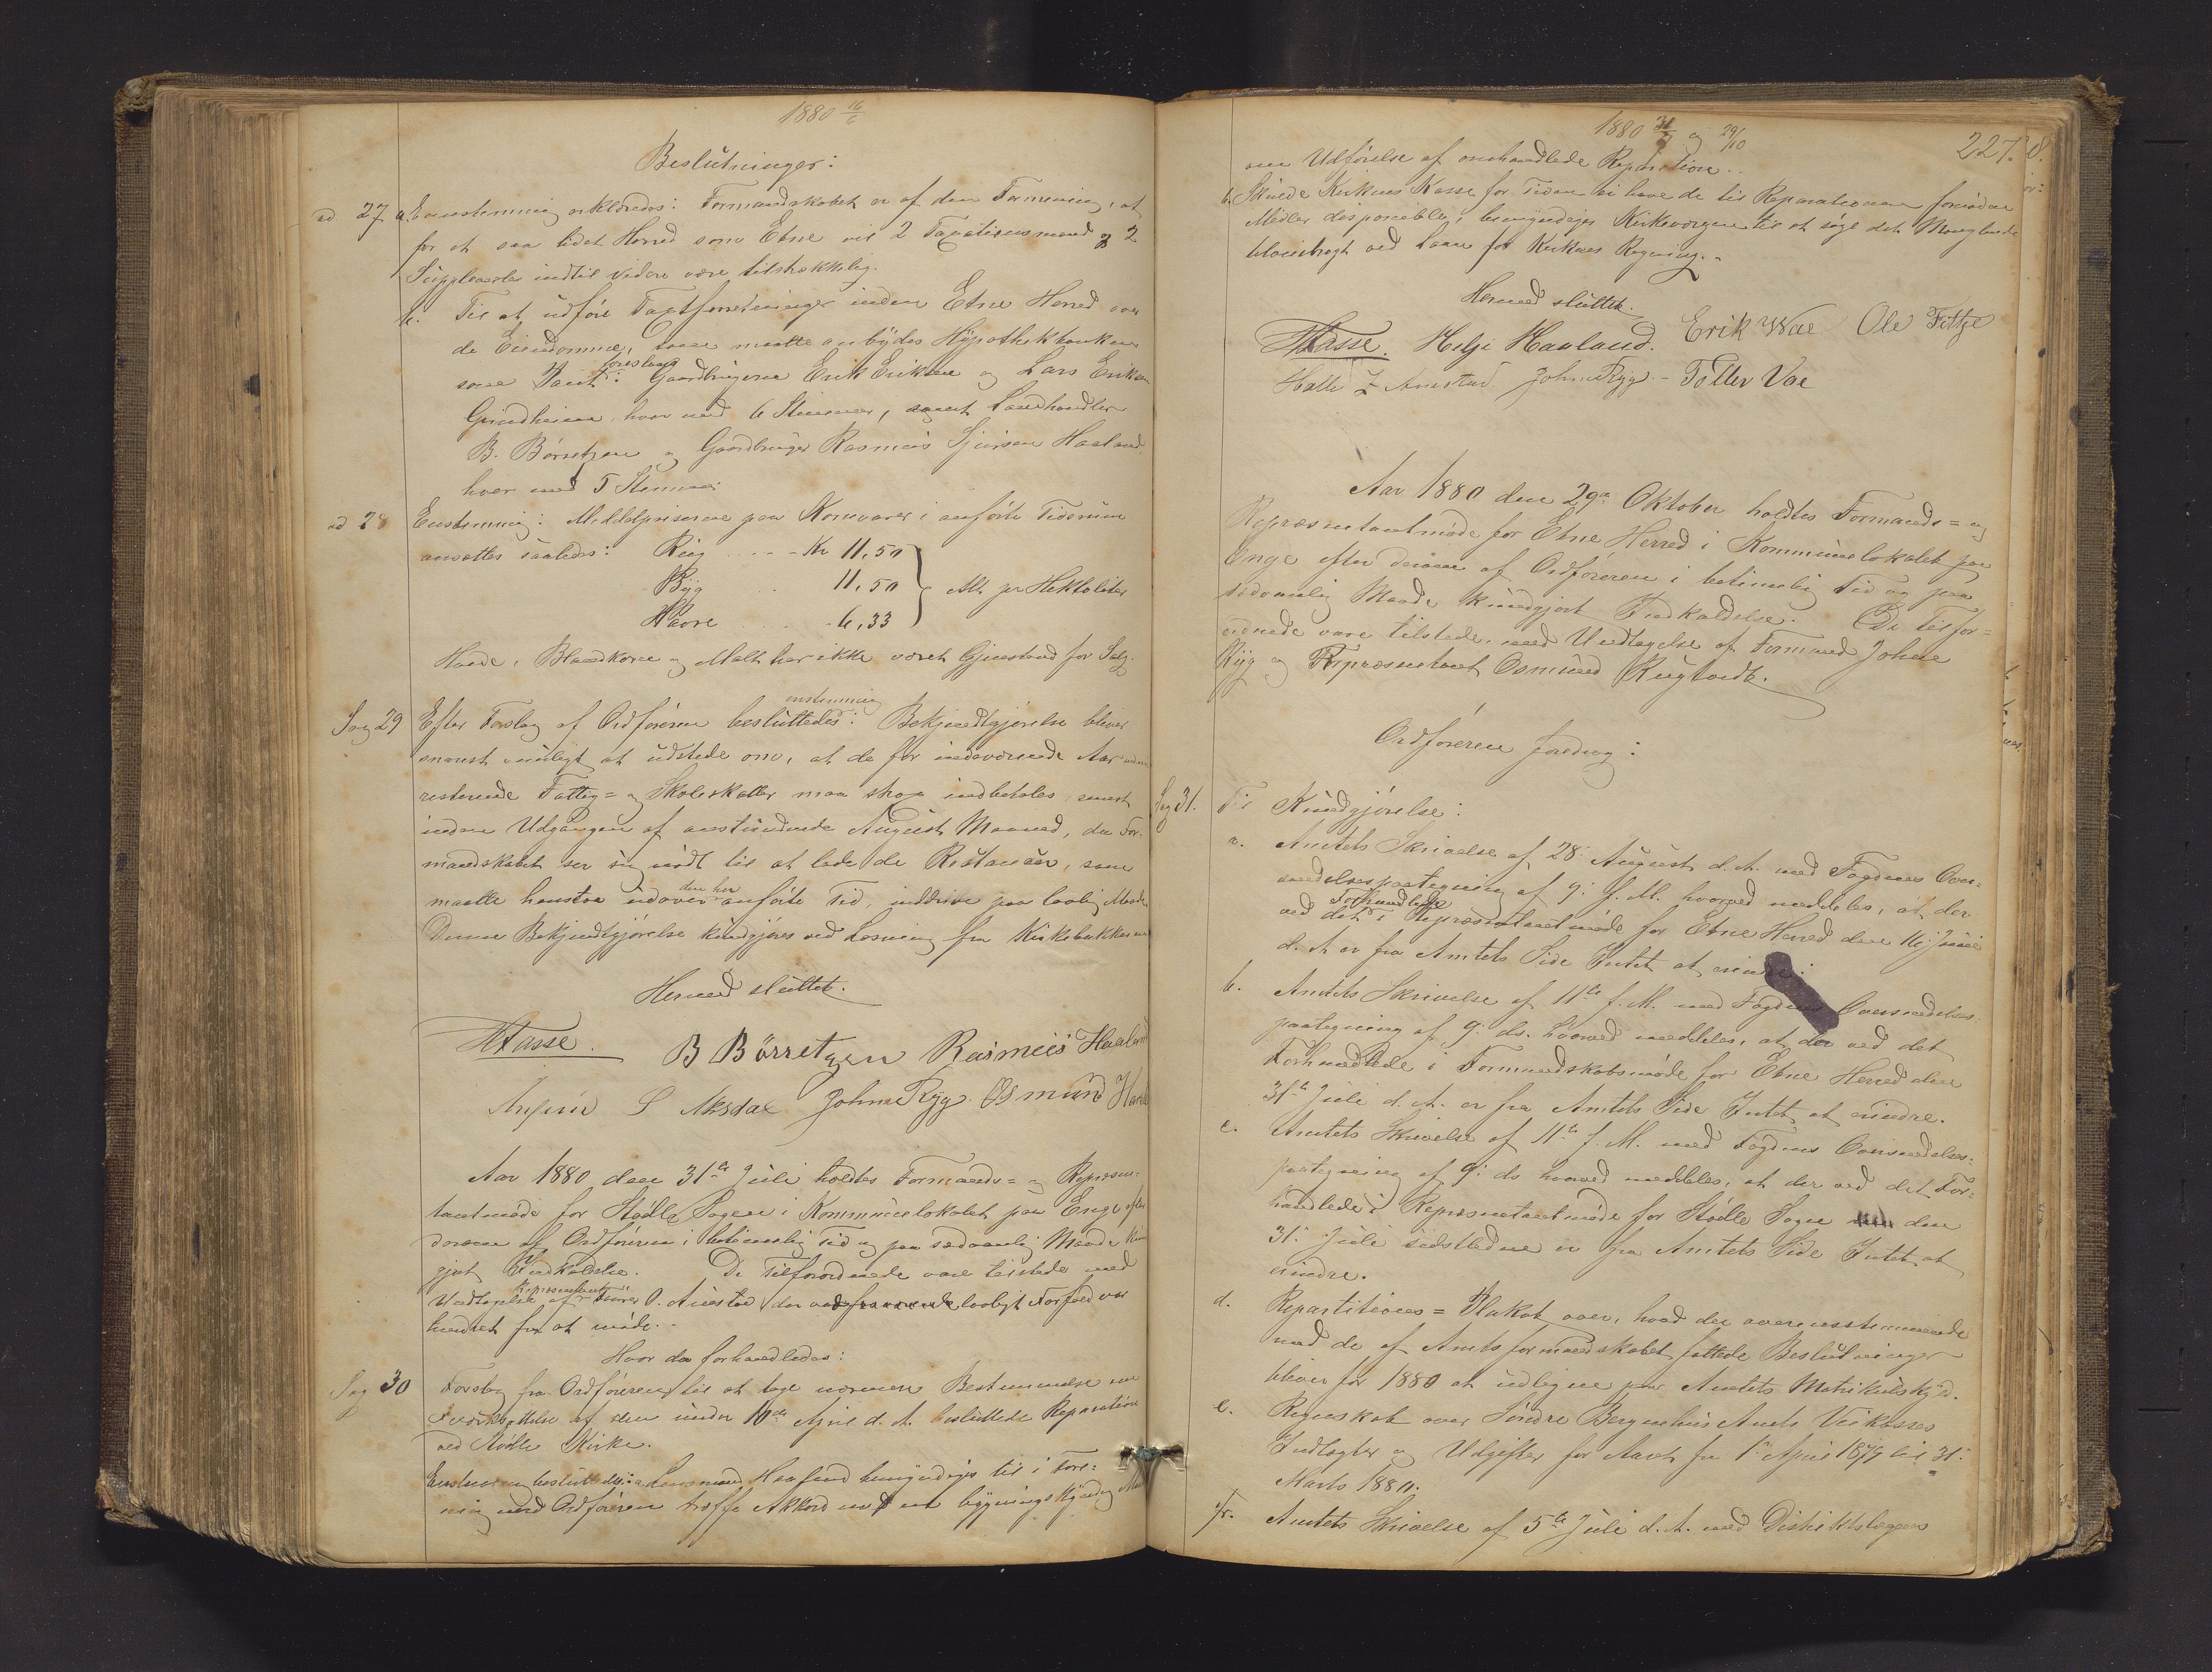 1880 16/6
Beslutninger:
ad 27 a. Eenstemmig erklæredes: Formandskabet er af den Formening, at
for et saa lidet Herred som Etne vil 2 Taxationsmænd og 2
Suppleanter indtil videre være tilstrækkelig.
b. Til at udføre Taxtforretninger inden Etne Herred over
de Eiendomme, som maatte anbydes Hypothekbanken
som Pant foreslages: Gaardbrugerne Erik Eriksen og Lars Eriksen
Grindheim hver med 6 Stemmer, samt Landhandler
B. Børretzen og Gaardbruger Rasmus Sjursen Haaland,
hver med 5 Stemmer.
ad 28 Eenstemmig: Middelpriserne paa Kornvarer i anførte Tidsrum
ansættes saaledes: Rug - Kr 11,50
Byg 11,50
Havre - 6,33
Alt per Hektoliter
Hvede, Blandkorn og Malt har ikke været Gjenstand for Salg.
Sag 29 Efter Forslag af Ordføreren besluttedes enstemmig: Bekjendtgjørelse bliver
snarest muligt at udstede om, at de for indeværende Aar
resterende Fattig= og Skoleskatter maa skee indbetales senest
inden Udgangen af anstundende August Maaned, da For-
mandskabet ser sig nødt til at lade de Restancer, som
maatte henstaa udover den her anførte Tid, inddrive paa lovlig Maade
Denne Bekjendtgjørelse kundgjøres ved Læsning fra Kirkebakken
Hermed sluttet.
Hasse. B Börretzen Rasmus Haaland
S Aksdal John Ryg. Osmund
Aar 1880 den 31te Juli holdtes Formands= og Repræsen-
tantmøde for Stødle Sogn i Kommunelokalet paa Enge efter
derom af Ordføreren i betimelig Tid og paa sædvanlig Maade kund
gjort Indkaldelse. De Tilforordnede vare tilstede med
Undtagelse af Repræsentant O. Austad der ved lovligt Forfald var
hindret fra at møde.
Hvor da forhandledes:
Sag 30 Forslag fra Ordføreren til at tage nærmere Bestemmelse om
Iværksættelse af den under 10de April d. A. besluttede Reparation
ved Stødle Kirke.
Enstemmig besluttedes: a. Lensmand Haaland bemyndiges til i Fore-
ning med Ordføreren træffe Akkord med en bygningskyndig Mand
1880 31/7 og 29/10
227.
om Udførelse af omhandlede Reparation.
b. Skulde Kirkens Kasse for Tiden ei have de til Reparationen fornødne
Midler disponible, bemyndiges Kirkeværgen til at søge det Manglende
tilveiebragt ved Laan for Kirkens Regning.
Hermed sluttet.
Hasse. Helje Haaland. Erik Wae Ole Fitje
Halle Austad John Ryg. Tollev Vae
Aar 1880 den 29de Oktober holdtes Formands= og
Repræsentantmøde for Etne Herred i Kommunelokalet paa
Enge efter derom af Ordføreren i betimelig Tid og paa
sædvanlig Maade kundgjort Indkaldelse. De Tilfor=
ordnede vare tilstede med Undtagelse af Formand John
Ryg og Repræsentant Osmund Rygtvedt.
Ordføreren foredrog:
Sag 31. Til Kundgjørelse:
a. Amtets Skrivelse af 28. August d. A. med Fogdens Over-
sendelsespaategning af 9. f. M. hvorved meddeles, at der
ved det Forhandlede i Repræsentantmøde for Etne Herred den 16. Juni
d. A. er fra Amtets Side Intet at erindre.
b. Amtets Skrivelse af 11te f. M. med Fogdens Oversendelses-
paategning af 9. ds. hvorved meddeles, at der ved det
Forhandlede i Formandskabsmøde for Etne Herred den
31te Juli d. A. er fra Amtets Side Intet at erindre.
c. Amtets Skrivelse af 11te f. M. med Fogdens Oversendelses-
paategning af 9. ds hvorved meddeles, at der ved det For-
handlede i Repræsentantmøde for Stødle Sogn den
31. Juli sidstleden er fra Amtets Side Intet at
erindre.
d. Repartitions= Plakat over, hvad der overensstemmende
med de af Amtsformandskabet fattede Beslutninger
bliver for 1880 at udligne paa Amtets Matrikulskyld.
e. Regnskab over Søndre Bergenhus Amts Veikasses
Indtægter og Udgifter for Aaret fra 1ste April 1879 til 31.
Marts 1880.
f. Amtets Skrivelse af 5te Juli d. A. med Distriktslægens